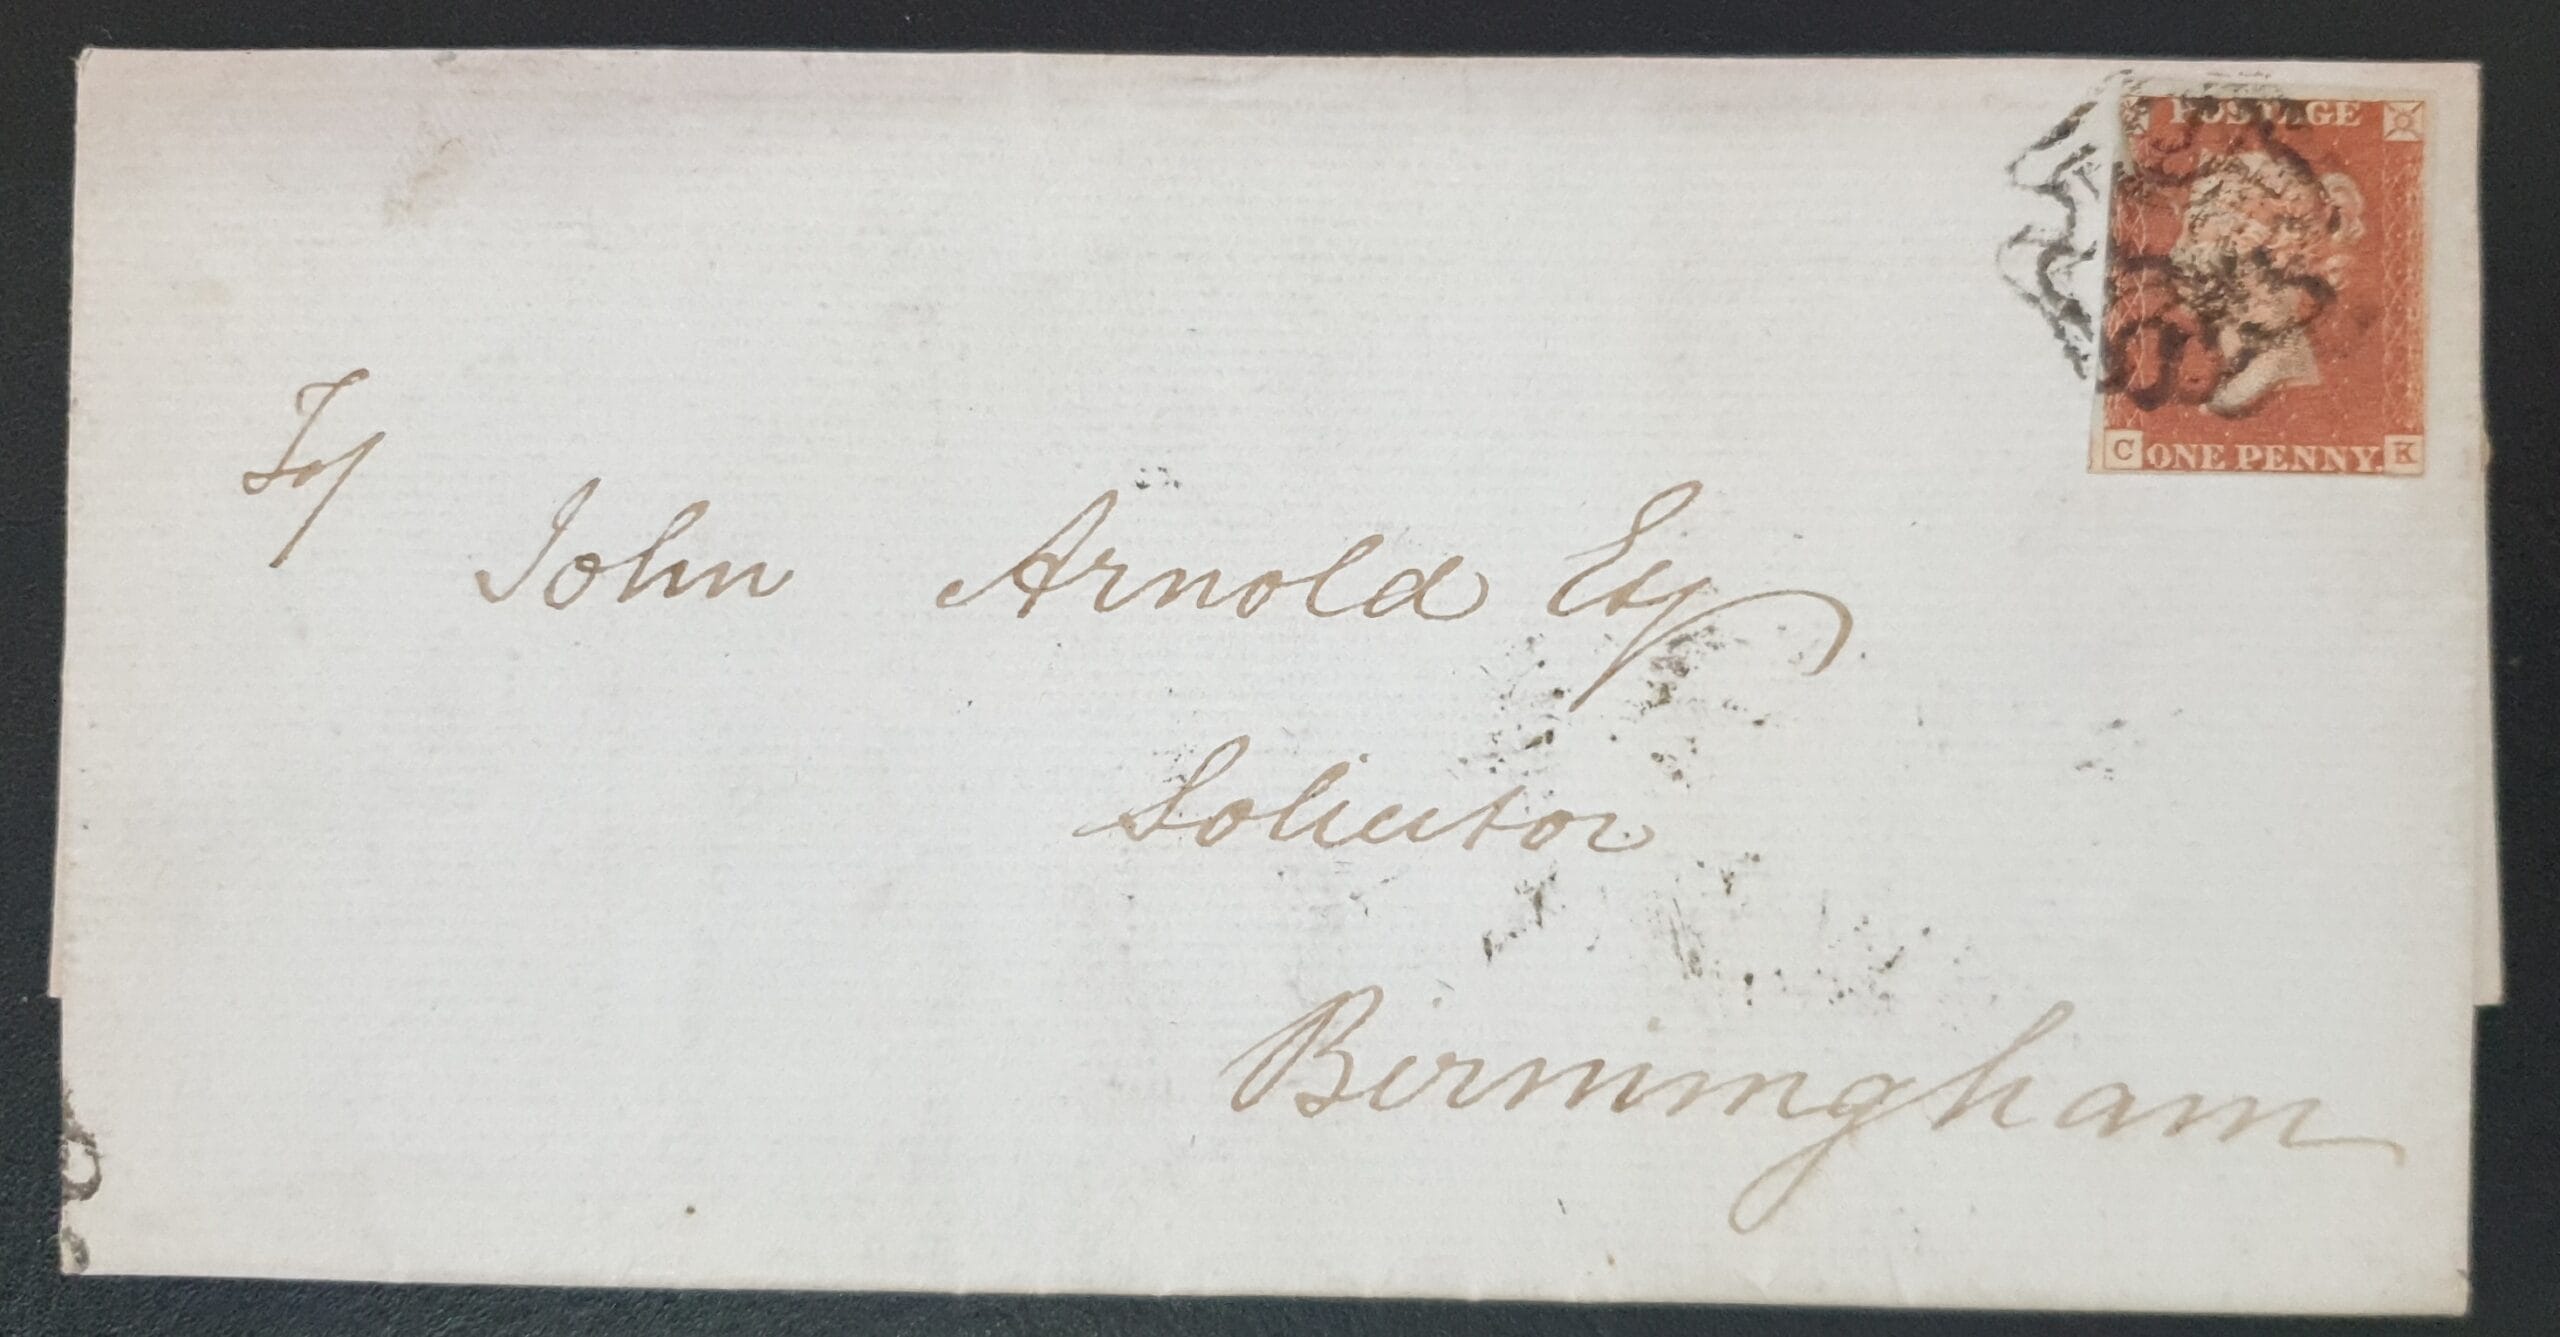 POSTAGE
C ONE PENNY. K
To/
John Arnold Esq
Solicitor
Birmingham